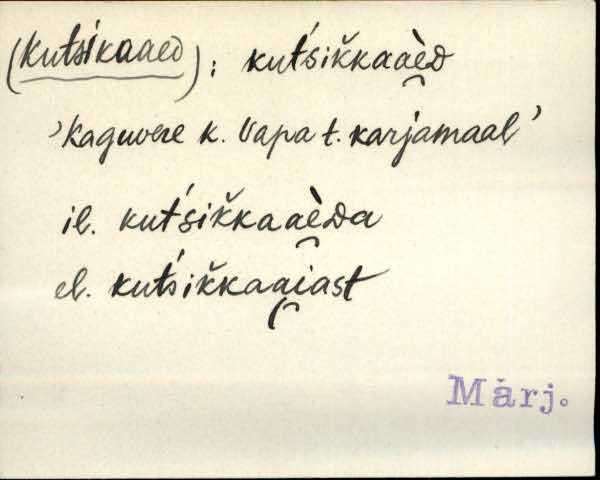 (Kut́sikaaed): kut́sikkaaèᴅ
'Kaguvere k. Vapa t. karjamaal'
il. kut́sikkaaèᴅa
el. kut́sikkaaiast
Märj.